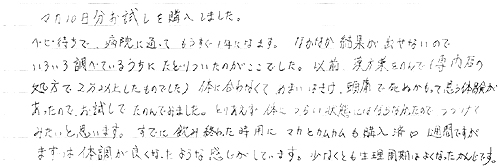 マカ10日分お試しを購入しました。
ベビ待ちで、病院に通って もうすぐ1年になます。なかなか結果が出せないので
いろいろ調べているうちに たどりついたのがここでした。以前 漢方薬をのんで(専門店の
処方で2万以上したものでした) 体に合わなくて めまいはきけ、頭痛でたおれかって思う体験が
あったので、お試しして たのんでみました。とりあえず 体に つらい状態にはならなかったので つづけて
みたいと思います。すでに飲み終わた時用に マカとカムカムも購入済 1週間ですが
まずは体調が良くなたような感じがしています。少なくとも生理周期はよくなったかんじです。